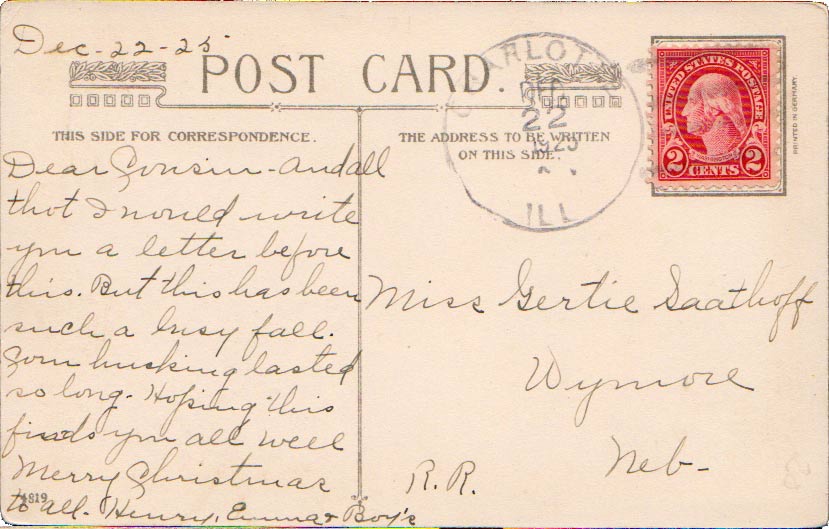 Dec-22-25
POST CARD.
THIS SIDE FOR CORRESPONDENCE.
Dear Cousin - and all
thot I would write
you a letter before
this. But this has been
such a busy fall.
Corn husking lasted
so long. Hoping this
finds you all well
Merry Christmas
to all. Henry, Emma & Boy's
4819
THE ADDRESS TO BE WRITTEN
ON THIS SIDE.
CHARLOTTE
DEC
22
1925
ILL
UNITED STATES POSTAGE
WASHINGTON
2 CENTS 2
PRINTED IN GERMANY.
Miss Gertie Saathoff
Wymore
Neb-
R.R.